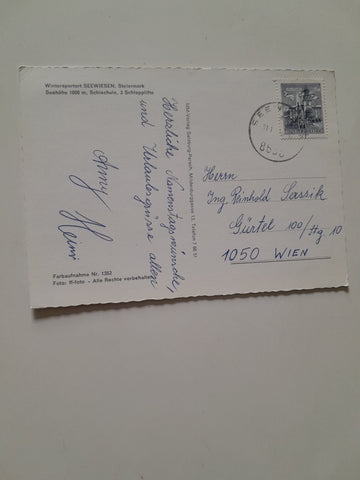 Wintersportort SEEWIESEN, Steiermark
Seehöhe 1000 m, Schischule, 3 Schlepplifte
Herzliche Namenstagswünsche,
und Urlaubsgrüsse allen
Anny
Heini
Farbaufnahme Nr. 1352
Foto: ff-foto - Alle Rechte vorbehalten
Salzburg-Parsch, Weidenburggasse 13, Telefon
SEEW
8636
Herrn
Ing. Reinhold Sassik
Gürtel 100/Hg 10
1050 WIEN